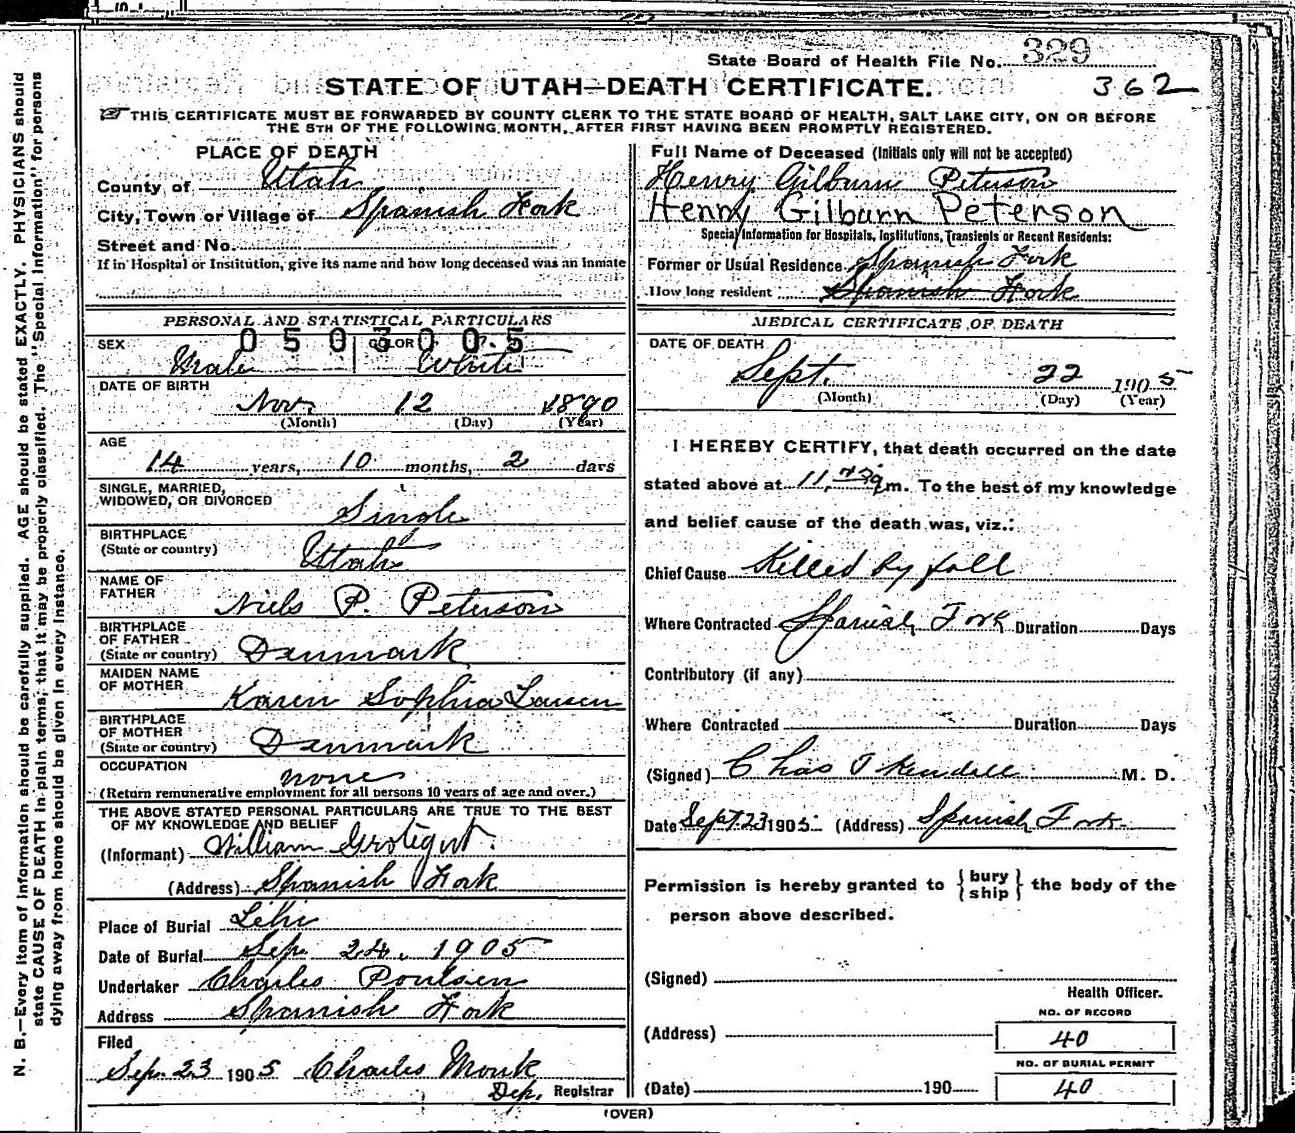 State Board of Health File No. 329
STATE OF UTAH—DEATH CERTIFICATE. 362
THIS CERTIFICATE MUST BE FORWARDED BY COUNTY CLERK TO THE STATE BOARD OF HEALTH, SALT LAKE CITY, ON OR BEFORE
THE 5TH OF THE FOLLOWING MONTH, AFTER FIRST HAVING BEEN PROMPTLY REGISTERED.
N. B.—Every item of information should be carefully supplied. AGE should be stated EXACTLY. PHYSICIANS should
state CAUSE OF DEATH in plain terms, that it may be properly classified. The "Special Information" for persons
dying away from home should be given in every instance.
PLACE OF DEATH
County of Utah
City, Town or Village of Spanish Fork
Street and No.
If in Hospital or Institution, give its name and how long deceased was an inmate
PERSONAL AND STATISTICAL PARTICULARS
0 5 0 3 0 0 5
SEX COLOR
Male White
DATE OF BIRTH
Nov. 12 1890
(Month) (Day) (Year)
AGE
14 years, 10 months, 2 days
SINGLE, MARRIED,
WIDOWED, OR DIVORCED
Single
BIRTHPLACE
(State or country) Utah
NAME OF
FATHER Niels P. Peterson
BIRTHPLACE
OF FATHER
(State or country) Denmark
MAIDEN NAME
OF MOTHER Karen Sophia Larsen
BIRTHPLACE
OF MOTHER
(State or country) Denmark
OCCUPATION none
(Return remunerative employment for all persons 10 years of age and over.)
THE ABOVE STATED PERSONAL PARTICULARS ARE TRUE TO THE BEST
OF MY KNOWLEDGE AND BELIEF
(Informant) William Grotegut.
(Address) Spanish Fork
Place of Burial Lehi
Date of Burial Sep. 24, 1905
Undertaker Charles Poulsen
Address Spanish Fork
Filed
Sep. 23 1905 Charles Monk
Dep. Registrar
Full Name of Deceased (Initials only will not be accepted)
Henry Gilburn Peterson
Henry Gilburn Peterson
Special Information for Hospitals, Institutions, Transients or Recent Residents:
Former or Usual Residence Spanish Fork
How long resident Spanish Fork
MEDICAL CERTIFICATE OF DEATH
DATE OF DEATH
Sept. 22 1905
(Month) (Day) (Year)
I HEREBY CERTIFY, that death occurred on the date
stated above at 11, m. To the best of my knowledge
and belief cause of the death was, viz.:
Chief Cause Killed by fall
Where Contracted Spanish Fork Duration Days
Contributory (if any)
Where Contracted Duration Days
(Signed) Chas T Kendall M. D.
Date Sept. 23 1905 (Address) Spanish Fork
Permission is hereby granted to {bury
ship} the body of the
person above described.
(Signed)
Health Officer.
NO. OF RECORD
(Address) 40
NO. OF BURIAL PERMIT
(Date) 190 40
(OVER)